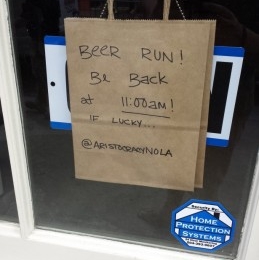 BEER RUN!
Be Back
at 11:00am!
IF LUCKY...
@ARISTOCRACYNOLA
HOME
PROTECTION
SYSTEMS